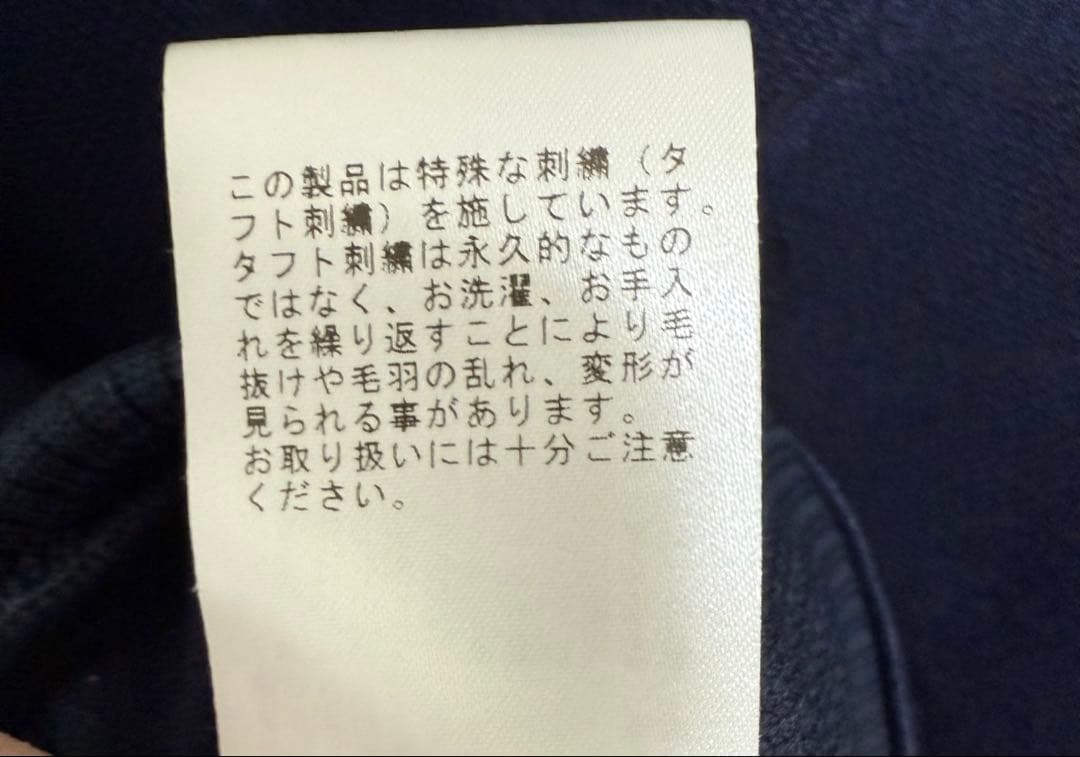 この製品は特殊な刺繍（タ
フト刺繍）を施しています。
タフト刺繍は永久的なもの
ではなく、お洗濯、お手入
れを繰り返すことにより毛
抜けや毛羽の乱れ、変形が
見られる事があります。
お取り扱いには十分ご注意
ください。